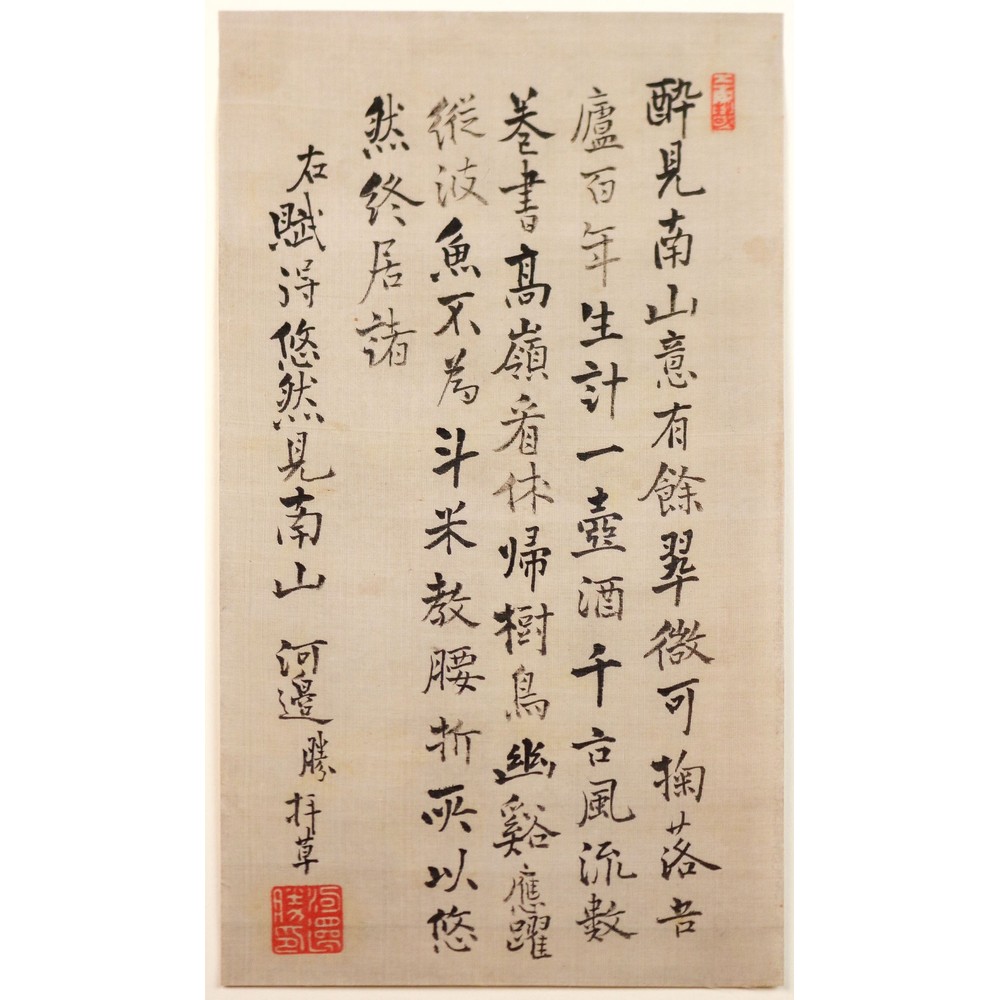 醉見南山意有餘翠微可掬落吾
廬百年生計一壺酒千古風流數
巻書高嶺看休帰樹鳥幽谿應躍
縦波魚不為斗米教腰折所以悠
然終居諸
右賦得悠然見南山 河邊勝拝草
河邊勝印